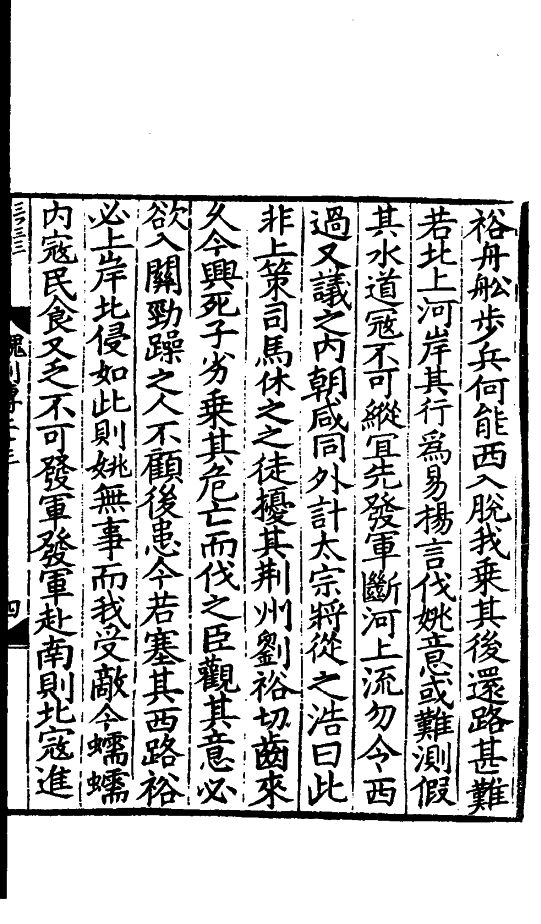 裕舟舩步兵何能西入脫我乗其後還路甚難
若北上河岸其行爲易楊言伐姚意或難測假
其水道冦不可縱冝先發軍斷河上流勿令西
過又議之内朝咸同外計太宗將從之浩曰此
非上策司馬休之之徒擾其荆州劉裕切齒來
久今興死子劣乗其危亡而伐之臣觀其意必
欲入關勁躁之人不顧後患今若塞其西路裕
必上岸北侵如此則姚無事而我受敵今蠕蠕
内冦民食又乏不可發軍發軍赴南則北冦進
魏列傳二十三
四